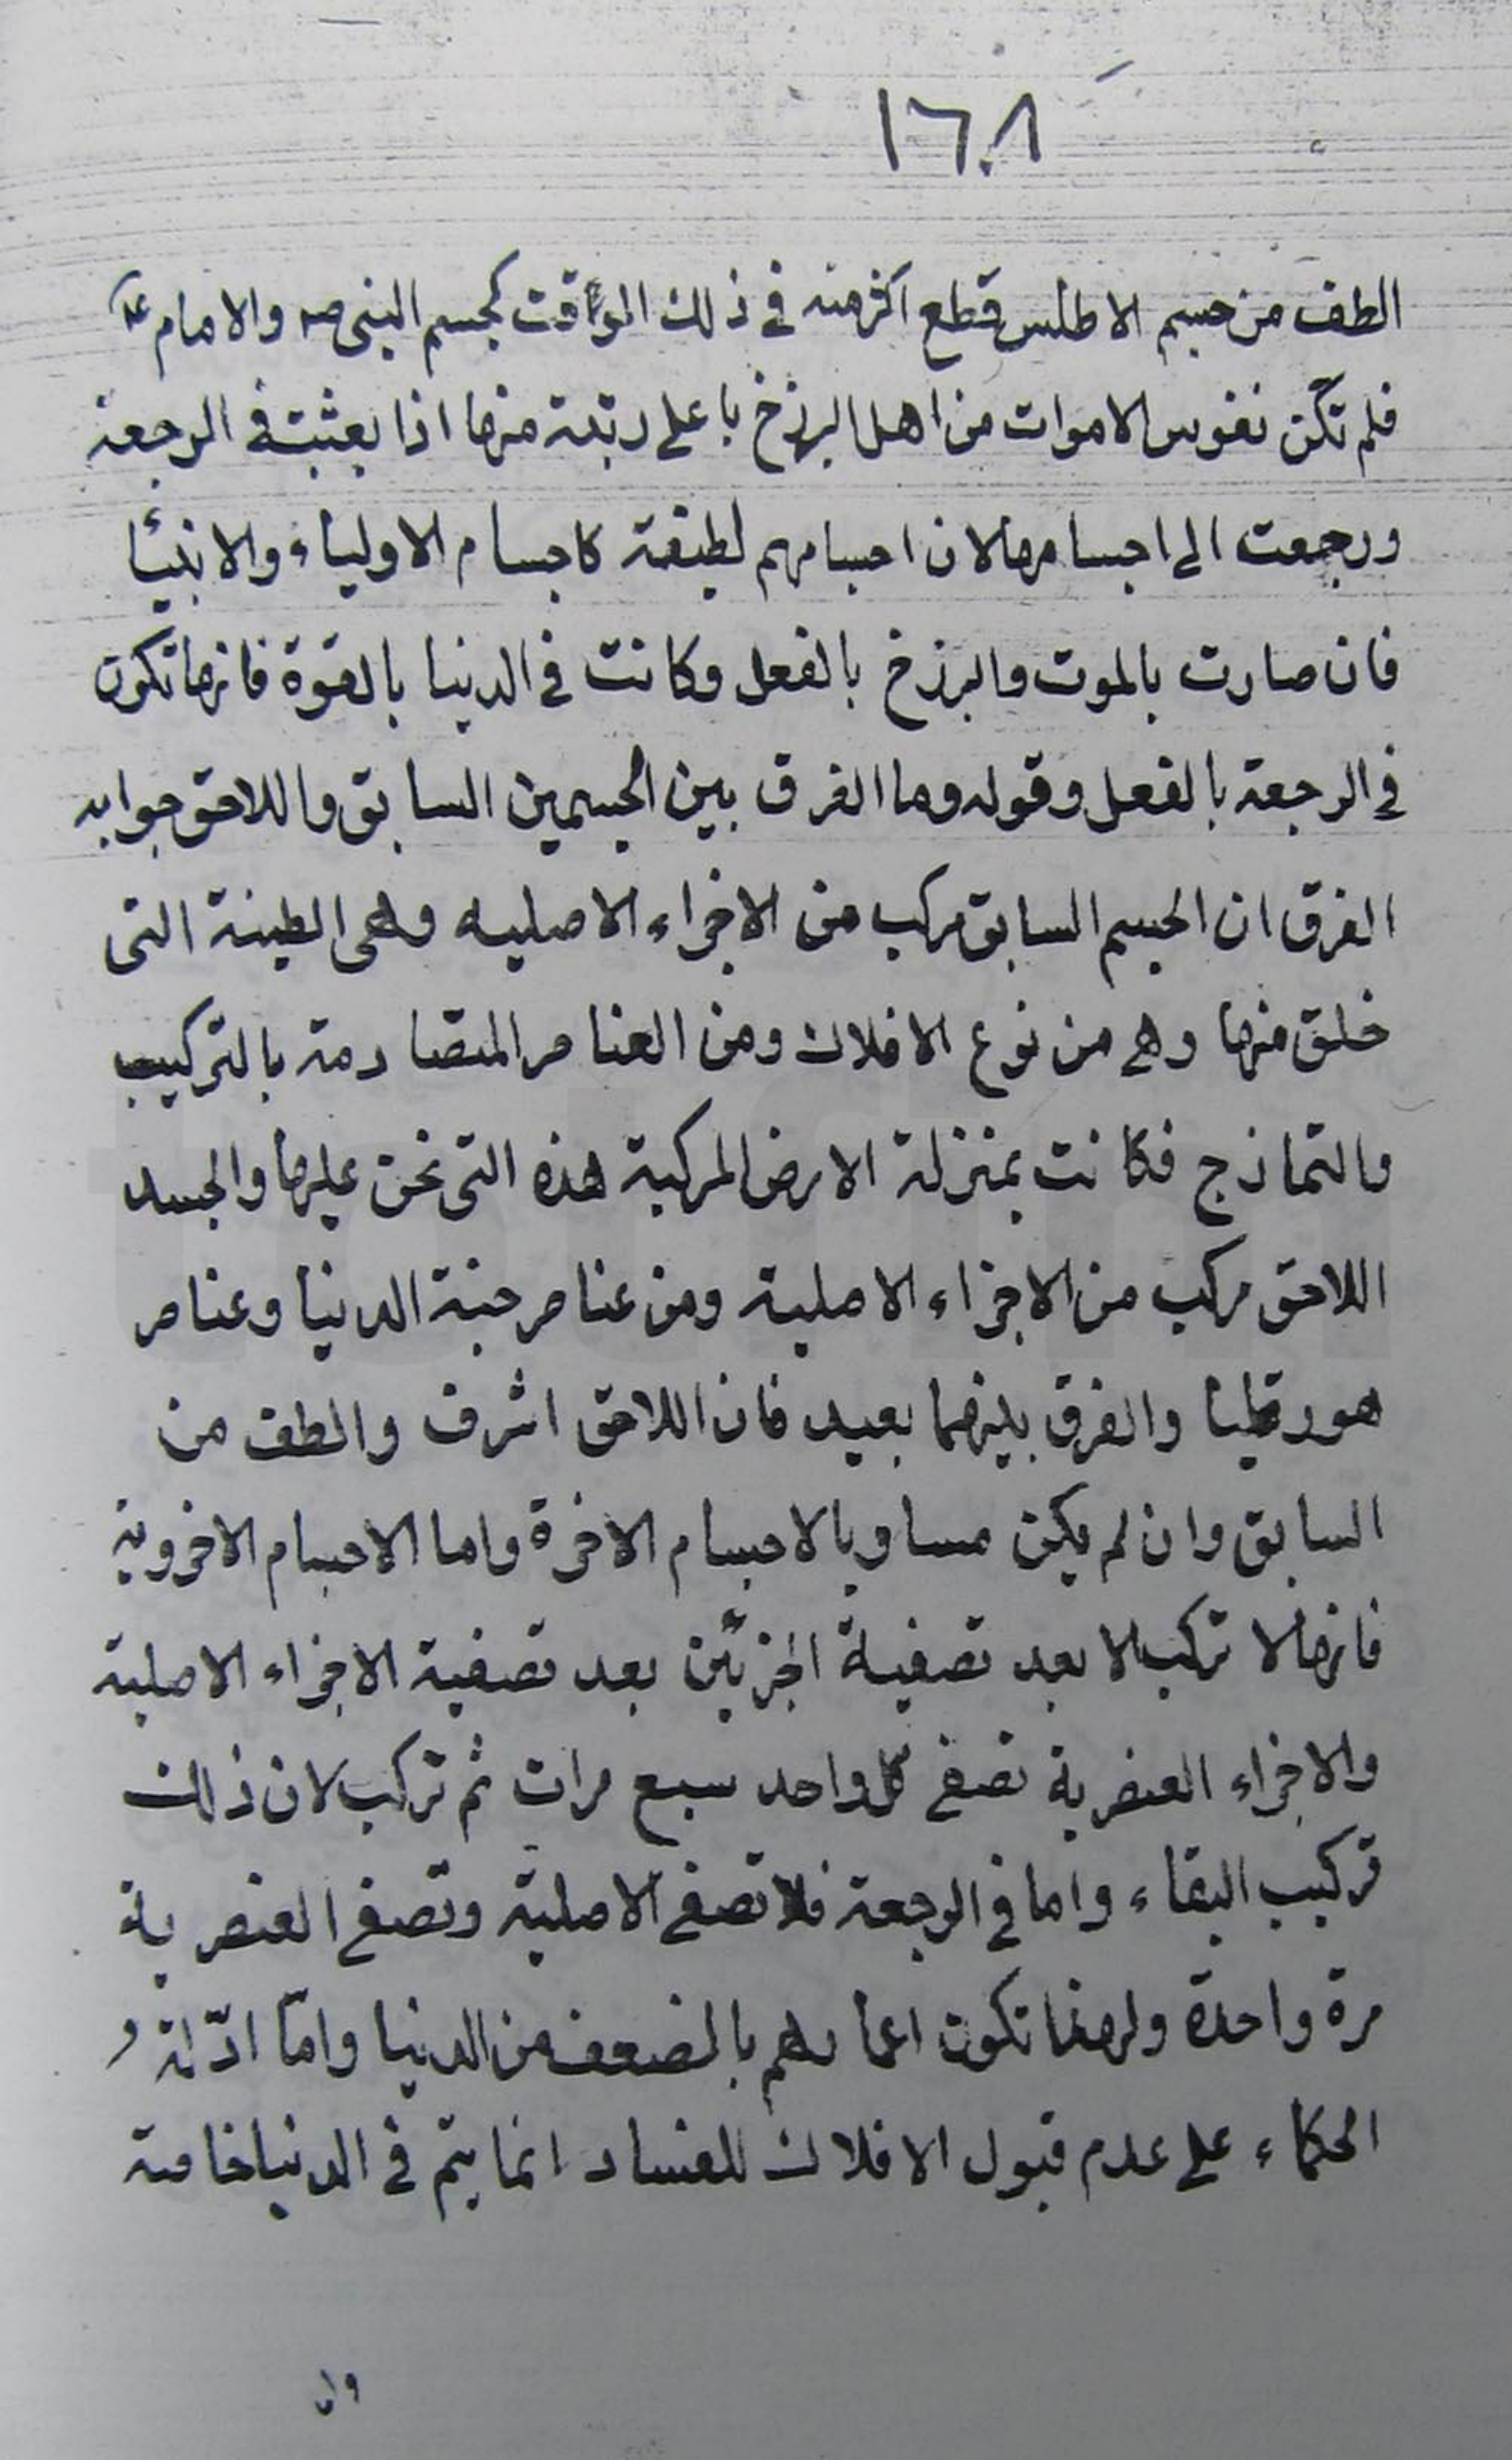 ١٦٠٨
الطف من جسم الاطلس قطع اكثر منه في ذلك الوقت كجسم النبي ص والامام ع
فلم تكن نفوس الاموات من اهل البرزخ باعلى رتبة منها اذا بعثت في الرجعة
ورجعت الى اجسامها لان اجسامهم لطيفة كاجسام الاولياء والانبيآ
فان صارت بالموت والبرزخ بالفعل وكانت في الدنيا بالقوة فانها تكون
في الرجعة بالفعل وقوله وما الفرق بين الجسمين السابق واللاحق جوابه
الفرق ان الجسم السابق مركب من الاجزاء الاصليه وهى الطينة التى
خلق منها وهى من نوع الافلاك ومن العناصر المتصادمة بالتركيب
والتمازج فكانت بمنزلة الارض المركبة هذه التى نحن عليها والجسد
اللاحق مركب من الاجزاء الاصلية ومن عناصر جنة الدنيا وعناصر
هورقليا والفرق بينهما بعيد فان اللاحق اشرف والطف من
السابق وان لم يكن مساويا لاجسام الاخرة واما الاجسام الاخروية
فانها لا تركب الا بعد تصفية الجزئين بعد تصفية الاجزاء الاصلية
والاجزاء العنصرية تصفى كل واحد سبع مرات ثم تركب لان ذلك
تركيب البقاء واما في الرجعة فلا تصفى الاصلية وتصفى العنصرية
مرة واحدة ولهذا تكون اعمارهم بالضعف من الدنيا وامّا ادّلة
الحكماء على عدم قبول الافلاك للفساد انما يتم في الدنيا خاصة